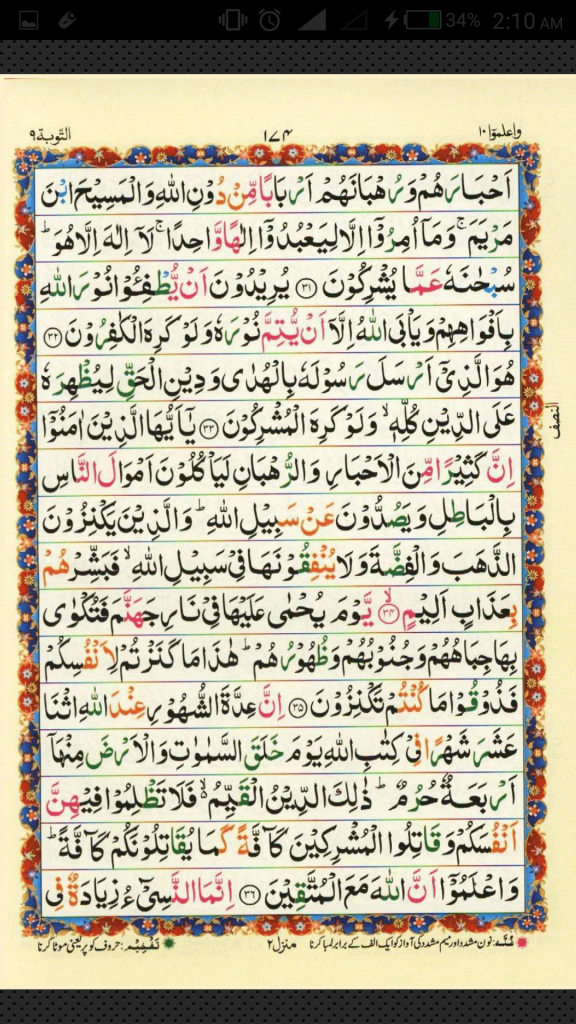 34% 2:10 AM
واعلموۤا ۱۰
۱۷۴
التّوبة ۹
اَحْبَارَهُمْ وَرُهْبَانَهُمْ اَرْبَابًا مِّنْ دُوْنِ اللّٰهِ وَالْمَسِيْحَ ابْنَ
مَرْيَمَ ۚ وَمَاۤ اُمِرُوْۤا اِلَّا لِيَعْبُدُوْۤا اِلٰهًا وَّاحِدًا ۚ لَاۤ اِلٰهَ اِلَّا هُوَ ؕ
سُبْحٰنَهٗ عَمَّا يُشْرِكُوْنَ ﴿۳۱﴾ يُرِيْدُوْنَ اَنْ يُّطْفِـُٔوْا نُوْرَ اللّٰهِ
بِاَفْوَاهِهِمْ وَيَاْبَى اللّٰهُ اِلَّاۤ اَنْ يُّتِمَّ نُوْرَهٗ وَلَوْ كَرِهَ الْكٰفِرُوْنَ ﴿۳۲﴾
هُوَ الَّذِيْۤ اَرْسَلَ رَسُوْلَهٗ بِالْهُدٰى وَدِيْنِ الْحَقِّ لِيُظْهِرَهٗ
عَلَى الدِّيْنِ كُلِّهٖ ۙ وَلَوْ كَرِهَ الْمُشْرِكُوْنَ ﴿۳۳﴾ يٰۤاَيُّهَا الَّذِيْنَ اٰمَنُوْۤا
اِنَّ كَثِيْرًا مِّنَ الْاَحْبَارِ وَالرُّهْبَانِ لَيَاْكُلُوْنَ اَمْوَالَ النَّاسِ
بِالْبَاطِلِ وَيَصُدُّوْنَ عَنْ سَبِيْلِ اللّٰهِ ؕ وَالَّذِيْنَ يَكْنِزُوْنَ
الذَّهَبَ وَالْفِضَّةَ وَلَا يُنْفِقُوْنَهَا فِيْ سَبِيْلِ اللّٰهِ ۙ فَبَشِّرْهُمْ
بِعَذَابٍ اَلِيْمٍ ﴿۳۴﴾ يَّوْمَ يُحْمٰى عَلَيْهَا فِيْ نَارِ جَهَنَّمَ فَتُكْوٰى
بِهَا جِبَاهُهُمْ وَجُنُوْبُهُمْ وَظُهُوْرُهُمْ ؕ هٰذَا مَا كَنَزْتُمْ لِاَنْفُسِكُمْ
فَذُوْقُوْا مَا كُنْتُمْ تَكْنِزُوْنَ ﴿۳۵﴾ اِنَّ عِدَّةَ الشُّهُوْرِ عِنْدَ اللّٰهِ اثْنَا
عَشَرَ شَهْرًا فِيْ كِتٰبِ اللّٰهِ يَوْمَ خَلَقَ السَّمٰوٰتِ وَالْاَرْضَ مِنْهَاۤ
اَرْبَعَةٌ حُرُمٌ ؕ ذٰلِكَ الدِّيْنُ الْقَيِّمُ ۙ فَلَا تَظْلِمُوْا فِيْهِنَّ
اَنْفُسَكُمْ وَقَاتِلُوا الْمُشْرِكِيْنَ كَآفَّةً كَمَا يُقَاتِلُوْنَكُمْ كَآفَّةً ؕ
وَاعْلَمُوْۤا اَنَّ اللّٰهَ مَعَ الْمُتَّقِيْنَ ﴿۳۶﴾ اِنَّمَا النَّسِيْٓءُ زِيَادَةٌ فِي
النصف
غُنَّه: نون مشدد اور میم مشدد کی آواز کو ایک الف کے برابر لمبا کرنا
منزل ۲
تَفخِیم: حروف کو پُر یعنی موٹا کرنا